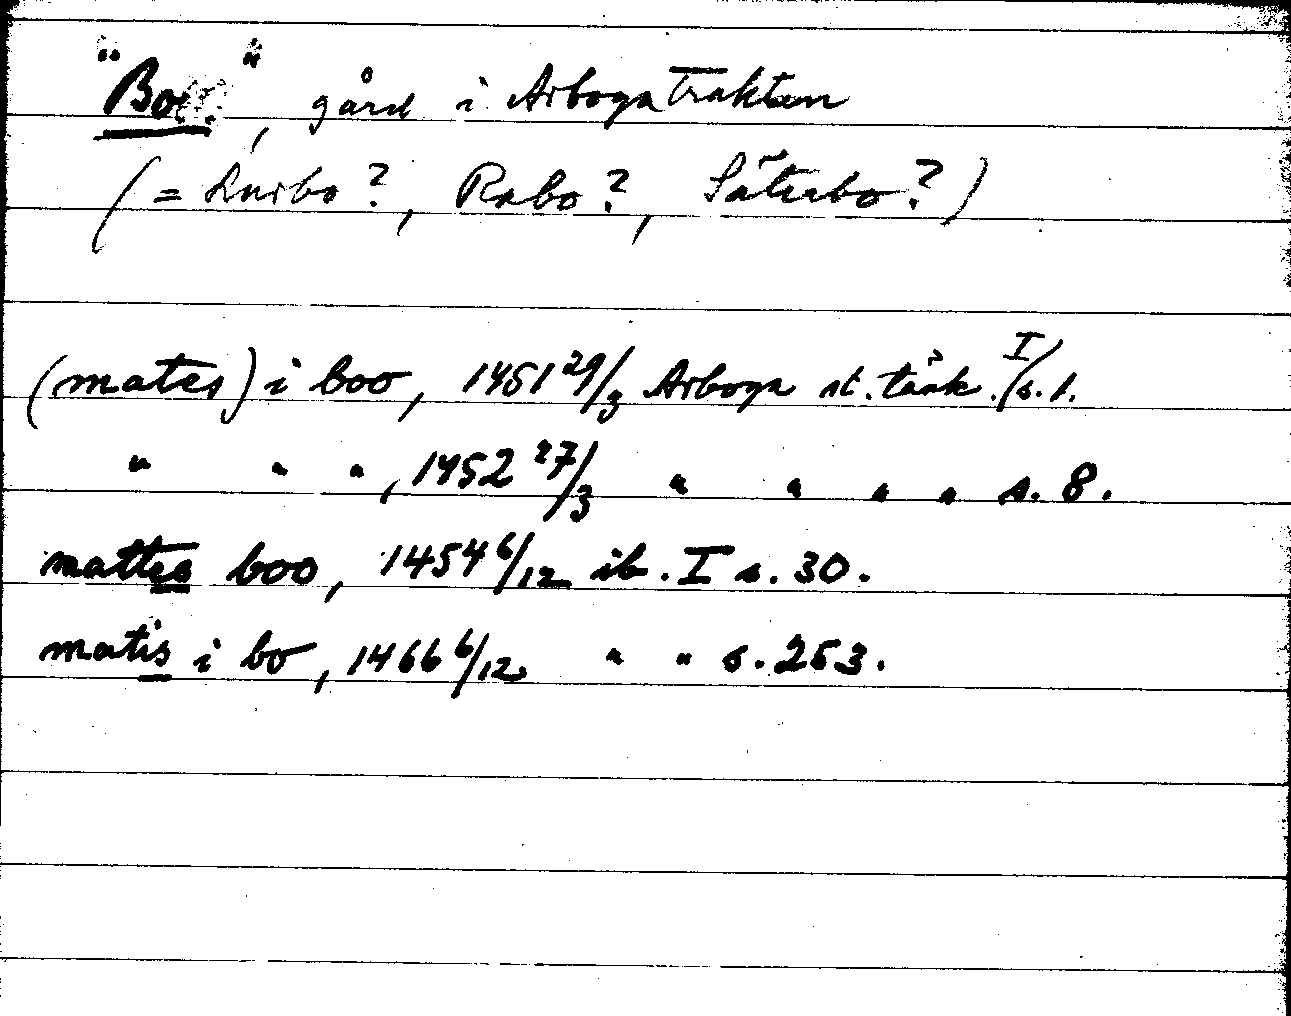 "Bo", gård i Arbogatrakten
(= Kurbo?, Rabo?, Säterbo?)
(mates) i boo, 1451 29/3 Arboga st. tänk. I/s. 1.
" " ", 1452 27/3 " " " " s. 8.
mattes boo, 1454 6/12 ib. I s. 30.
matis i bo, 1466 6/12 " " s. 253.